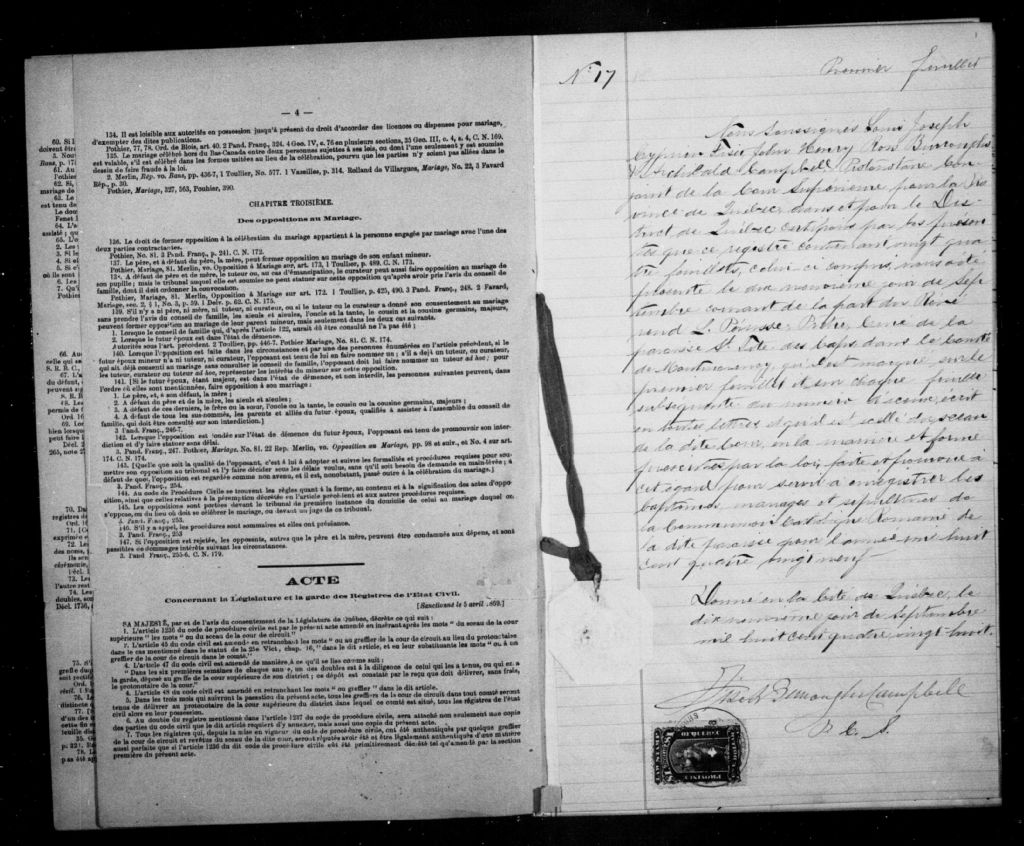 — 4 —
134. Il est loisible aux autorités en possession jusqu'à présent du droit d'accorder des licences ou dispenses pour mariage,
d'exempter des dites publications.
Pothier, 77, 78. Ord. de Blois, art. 40. 2 Pand. Franç., 324. 4 Geo. IV, c. 76 en plusieurs sections, 35 Geo. III, c. 4, s. 4, C. N. 169.
135. Le mariage célébré hors du Bas-Canada entre deux personnes sujettes à ses lois, ou dont l'une seulement y est soumise
est valable, s'il est célébré dans les formes usitées au lieu de la célébration, pourvu que les parties n'y soient pas allées dans le
dessin de faire fraude à la loi.
2. Merlin, Rép. vo. Bans, pp. 436-7, 1 Toullier, No. 577. 1 Vazeilles, p. 314. Rolland de Villargues, Mariage, No. 22, 3 Favard
Rép., p. 30.
Pothier, Mariage, 327, 563, Pouhier, 390.
CHAPITRE TROISIÈME.
Des oppositions au Mariage.
136. Le droit de former opposition à la célébration du mariage appartient à la personne engagée par mariage avec l'une des
deux parties contractantes.
Pothier, No. 81. 3 Pand. Franç., p. 241. C. N. 172.
137. Le père, et à défaut du père, la mère, peut former opposition au mariage de son enfant mineur.
Pothier, Mariage, 81. Merlin, vo. Opposition à Mariage sur, art. 173, 1 Toullier, p. 489. C. N. 173.
138. A défaut de père et de mère, le tuteur ou, au cas d'émancipation, le curateur peut aussi faire opposition au mariage de
son pupille; mais le tribunal auquel elle est soumise ne peut statuer sur cette opposition qu'après avoir pris l'avis du conseil de
famille, dont il doit ordonner la convocation.
Pothier, Mariage, 81. Merlin, Opposition à Mariage sur art. 172. 1 Toullier, p. 425, 490. 3 Pand. Franç., 248. 2 Favard,
Mariage, sec. 2, § 1, No. 3, p. 59. 1 Delv. p. 62. C. N. 175.
139. S'il n'y a ni père, ni mère, ni tuteur, ni curateur, ou si le tuteur ou le curateur a donné son consentement au mariage
sans prendre l'avis du conseil de famille, les aïeuls et aïeules, l'oncle et la tante, le cousin et la cousine germains, majeurs,
peuvent former opposition au mariage de leur parent mineur, mais seulement dans les deux cas suivants.
1. Lorsque le conseil de famille qui, d'après l'article 122, aurait dû être consulté ne l'a pas été;
2. Lorsque le futur époux est dans l'état de démence.
Autorités sous l'art. précédent. 2 Toullier, pp. 446-7. Pothier Mariage, No. 81. C. N. 174.
140. Lorsque l'opposition est faite dans les circonstances et par une des personnes énumérées en l'article précédent, si le
futur époux mineur n'a ni tuteur, ni curateur, l'opposant est tenu de lui en faire nommer un; s'il a déjà un tuteur, ou curateur,
qui ait déjà consenti au mariage sans consulter le conseil de famille, l'opposant doit lui faire nommer un tuteur ad hoc; pour
les tuteur, curateur ou tuteur ad hoc, représenter les intérêts du mineur sur cette opposition.
141. [Si le futur époux, étant majeur, est dans l'état de démence, et non interdit, les personnes suivantes peuvent, dans
l'ordre où elles sont mentionnées, faire opposition à son mariage:
1. Le père, et, à son défaut, la mère;
2. A défaut du père et de la mère, les aïeuls et aïeules;
3. A défaut de ces derniers, le frère ou la sœur, l'oncle ou la tante, le cousin ou la cousine germains, majeurs;
4. A défaut de tous les sus-nommés, les parents et alliés du futur époux, qualifiés à assister à l'assemblée du conseil de
famille, qui doit être consulté sur son interdiction.]
3 Pand. Franç., 246-7.
142. Lorsque l'opposition est fondée sur l'état de démence du futur époux, l'opposant est tenu de promouvoir son inter-
diction et d'y faire statuer sans délai.
3. Pand. Franç., 247. Pothier, Mariage, No. 81. 22 Rep. Merlin, vo. Opposition au Mariage, pp. 98 et suiv., et No. 4 sur art.
174. C. N. 174.
143. [Quelle que soit la qualité de l'opposant, c'est à lui à adopter et suivre les formalités et procédures requises pour sou-
mettre son opposition au tribunal et l'y faire décider sous les délais voulus, sans qu'il soit besoin de demande en main-levée; à
défaut de quoi, l'opposition est regardée comme non avenue, et il est, nonobstant, passé outre à la célébration du mariage.]
3. Pand. Franç., 254.
144. Au code de Procédure Civile se trouvent les règles quant à la forme, au contenu et à la signification des actes d'oppo-
sition, ainsi que celles relatives à la péremption décrétée en l'article précédent et aux autres procédures requises.
145. Les oppositions sont portées devant le tribunal de première instance du domicile de celui au mariage duquel on
s'oppose, ou du lieu où doit se célébrer le mariage, ou devant un juge de ce tribunal.
3. Pand. Franç., 253.
146. S'il y a appel, les procédures sont sommaires et elles ont préséance.
3. Pand. Franç., 253
147. Si l'opposition est rejetée, les opposants, autres que le père et la mère, peuvent être condamnés aux dépens, et sont
passibles de dommages intérêts suivant les circonstances.
3. Pand. Franç., 255-6. C. N. 179.
ACTE
Concernant la Législature et la garde des Registres de l'Etat Civil.
[Sanctionné le 5 avril .869.]
SA MAJESTÉ, par et de l'avis du consentement de la Législature de Québec, décrète ce qui suit:
1. L'article 1236 du code de procédure civile est par le présent acte amendé en insérant après les mots "du sceau de la cour
supérieure" les mots "ou du sceau de la cour de circuit."
2. L'article 45 du code civil est amendé en retranchant les mots "ou au greffier de la cour de circuit au lieu du protonotaire
dans le cas mentionné dans le statut de la 25e Vict., chap. 16," dans le dit article, et en leur substituant les mots "ou à un
greffier de la cour de circuit dans le comté."
3. L'article 47 du code civil est amendé de manière à ce qu'il se lise comme suit:
"Dans les six premières semaines de chaque année, un des doubles est à la diligence de celui qui les a tenus, ou qui en a
la garde, déposé au greffe de la cour supérieure de son district; ce dépôt est constaté par le reçu que doit délivrer, sans frais,
le protonotaire de la cour."
4. L'article 48 du code civil est amendé en retranchant les mots "ou greffier" dans le dit article.
5. Dans les trois mois qui suivront la passation du présent acte, tous les greffiers de la cour de circuit dans tout comté seront
tenus de délivrer au protonotaire de la cour supérieure du district dans lequel ce comté est situé, tous les registres de l'état
civil alors en leur possession.
6. Au double du registre mentionné dans l'article 1237 du code de procédure civile, sera attaché non seulement une copie
des parties du code civil que le dit article requiert d'y annexer, mais aussi une copie du présent acte.
7. Tous les registres qui, depuis la mise en vigueur du code de procédure civile, ont été authentiqués par quelque greffier
de la cour de circuit et revêtus du sceau de la dite cour, seront réputés avoir été et être légalement authentiqués d'une manière
aussi parfaite que si l'article 1236 du dit code de procédure civile eût été primitivement décrété tel qu'amendé par la section
première du présent acte.
No 17
Premier feuillet
Nous Soussignés Louis Joseph
Cyprien Fiset John Henry Ross Burroughs
& Archibald Campbell, Protonotaire Con-
joint de la Cour Supérieure pour la Pro
vince de Québec, dans et pour le Dis-
trict de Québec certifions par les présen
tes que ce registre contenant vingt qua
tre feuillets, celui-ci compris, nous a été
présenté le dix neuvième jour de Sep
tembre courant de la part du Reve
rend L. Pérusse, Prêtre, Curé de la
paroisse St Tite des Caps dans le comté
de Montmorency, qu'il est marqué sur le
premier feuillet et sur chaque feuillet
subséquent du numéro d'icelui, écrit
en toutes lettres et qu'il est scellé du sceau
de la dite Cour, en la manière et forme
prescrites par la loi, faite et pourvue à
cet égard pour servir à enregistrer les
baptêmes, mariages et sépultures de
la Communion Catholique Romaine de
la dite paroisse pour l'année mil huit
cent quatre vingt neuf
Donné en la Cité de Québec, le
dix neuvième jour de Septembre
mil huit cent quatre vingt huit.
Fiset Burroughs Campbell
P. C. S.
LAW STAMP
PROVINCE